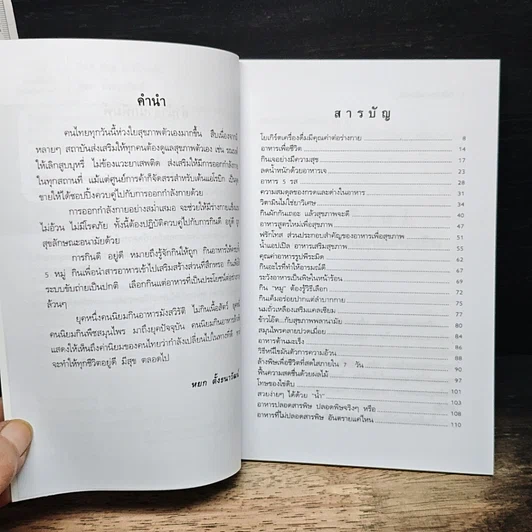 คำนำ
คนไทยทุกวันนี้ห่วงใยสุขภาพตัวเองมากขึ้น สืบเนื่องจาก
หลายๆ สถาบันส่งเสริมให้ทุกคนต้องดูแลสุขภาพตัวเอง เช่น
ให้เลิกสูบบุหรี่ ไม่ข้องแวะยาเสพติด ส่งเสริมให้มีการออกกำลังกาย
ในทุกสถานที่ แม้แต่ศูนย์การค้าก็จัดสรรสำหรับเต้นแอโรบิก
ขายให้ได้ชอปปิ้งควบคู่ไปกับการออกกำลังกายด้วย
การออกกำลังกายอย่างสม่ำเสมอ จะช่วยให้มีร่างกาย
ไม่อ้วน ไม่มีโรคภัย ทั้งนี้ต้องปฏิบัติควบคู่ไปกับการกินดี อยู่ดี
สุขลักษณะอนามัยด้วย
การกินดี อยู่ดี หมายถึงรู้จักกินให้ถูก กินอาหารให้
5 หมู่ กินเพื่อนำสารอาหารเข้าไปเสริมสร้างส่วนที่สึกหรอ
ระบบขับถ่ายเป็นปกติ เลือกกินแต่อาหารที่เป็นประโยชน์
ล้วนๆ
ยุคหนึ่งคนนิยมกินอาหารมังสวิรัติ ไม่กินเนื้อสัตว์
คนนิยมกินพืชสมุนไพร มาถึงยุคปัจจุบัน คนนิยมกินอาหาร
แสดงให้เห็นถึงค่านิยมของคนไทยว่ากำลังเปลี่ยนไปในทางที่ดี
จะทำให้ทุกชีวิตอยู่ดี มีสุข ตลอดไป
หยก ตั้งธนาวัฒน์
สารบัญ
โยเกิร์ตเครื่องดื่มมีคุณค่าต่อร่างกาย 8
อาหารเพื่อชีวิต 14
กินเจอย่างมีความสุข 17
ลดน้ำหนักด้วยอาหารเจ 21
อาหาร 5 รส 24
ความสมดุลของกรดและด่างในอาหาร 29
วิตามินไม่ใช่ยาวิเศษ 34
กินผักกันเถอะ แล้วสุขภาพจะดี 38
อาหารสูตรใหม่เพื่อสุขภาพ 42
พริกไทย ส่วนประกอบสำคัญของอาหารเพื่อสุขภาพ 46
น้ำแอปเปิล อาหารเสริมสุขภาพ
คุณค่าอาหารรูปพีระมิด
กินอะไรที่ทำให้อารมณ์ดี
ระวังอาหารเป็นพิษในหน้าร้อน
กิน "หมู" ต้องรู้วิธีเลือก
กินเค็มอร่อยปากแต่ลำบากกาย
นมถั่วเหลืองเสริมแคลเซียม
ข้าวโอ๊ต..กับสุขภาพพลานามัย
สมุนไพรคลายปวดเมื่อย
อาหารต้านมะเร็ง
วิธีหนีไขมันตัวการความอ้วน
ล้างพิษเพื่อชีวิตที่สดใสภายใน 7 วัน
ฟื้นความสดชื่นด้วยผลไม้
โทษของไข่ดิบ
สวยง่ายๆ ได้ด้วย "น้ำ" 103
อาหารปลอดสารพิษ ปลอดพิษจริงๆ หรือ 108
อาหารที่ไม่ปลอดสารพิษ อันตรายแค่ไหน 110